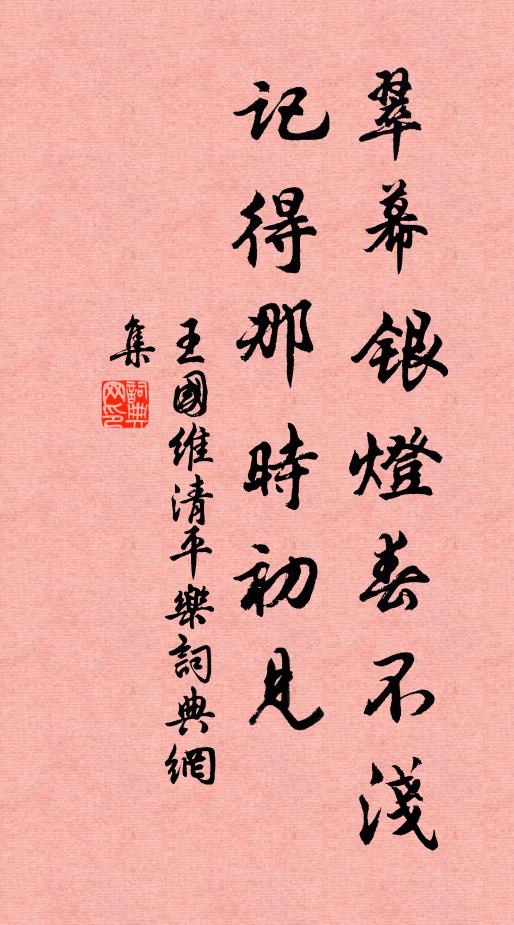 翠幕銀燈春不淺
記得那時初見
王國維清平樂詞典網
集
詞典网印